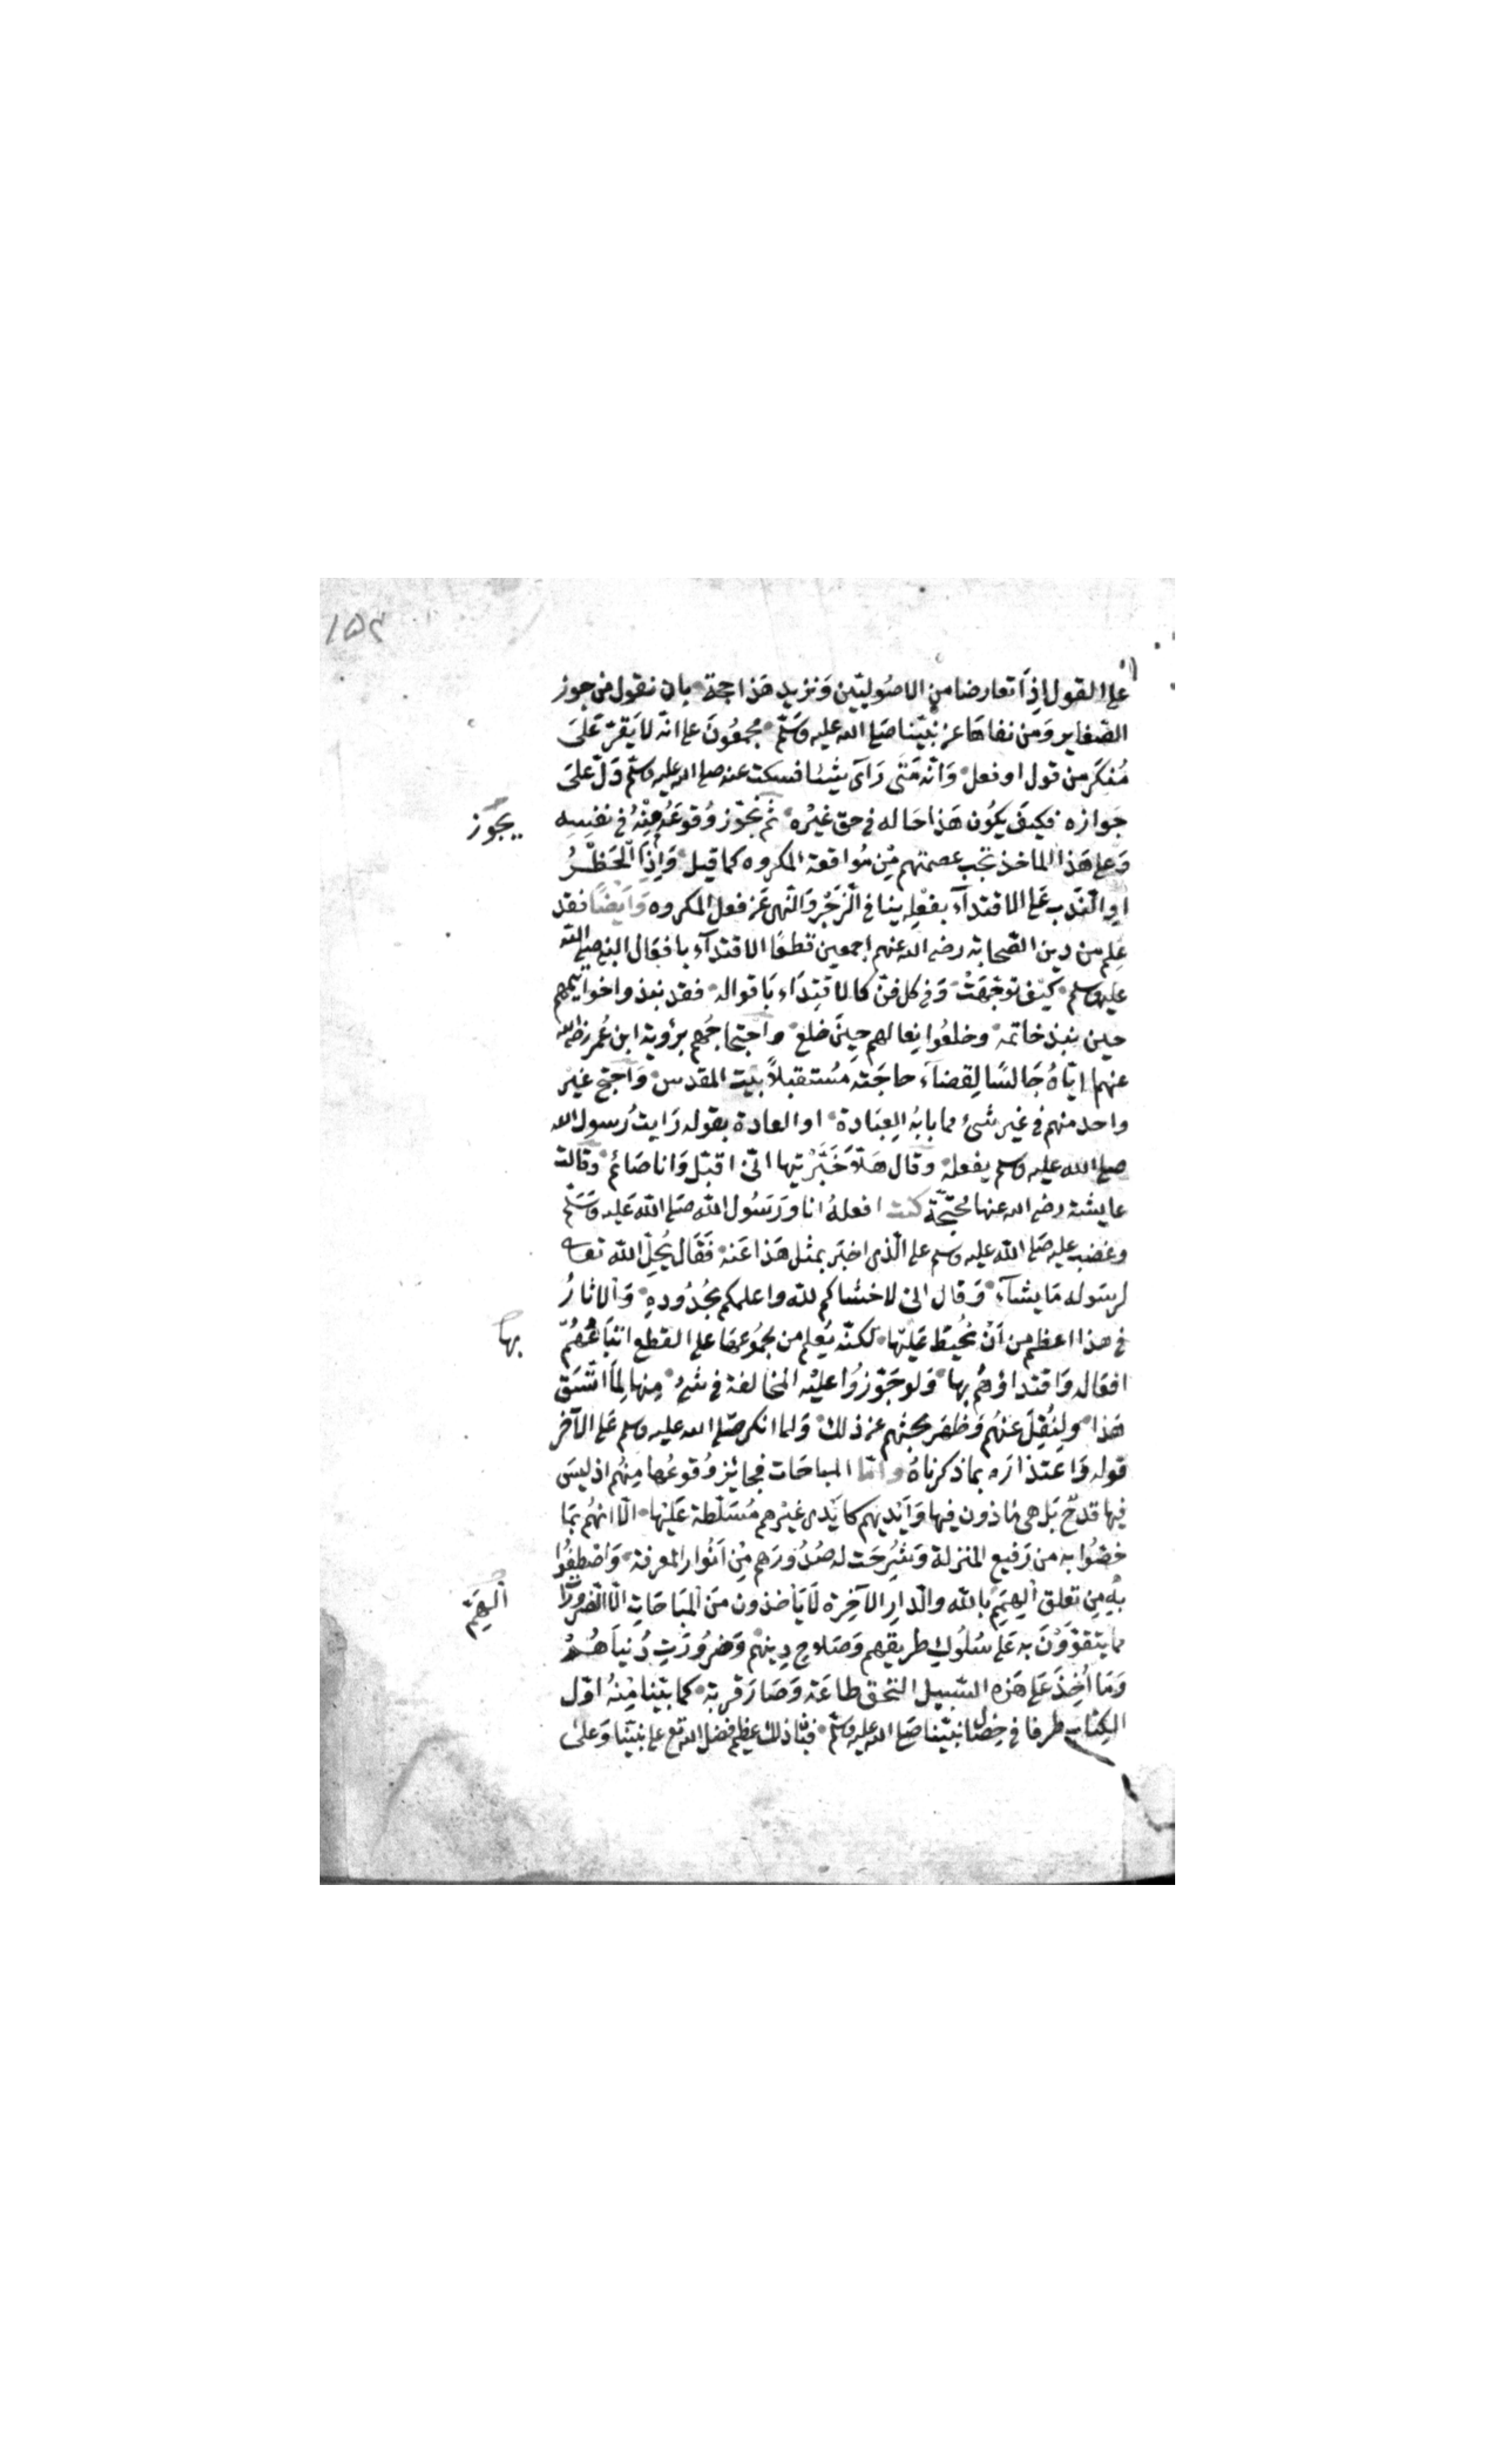 ١٥٤
على القول اذا تعارضا من الاصُوليّين وَنزيد هَذا حجة بان نقول من جوز
الصّغاير وَمن نفاهَا عن نبيّنا صَلى الله عليه وَسَلّم مجمعُونَ على انّه لا يَقرّ عَلىَ
مُنكَر من قول او فعل وَانّه مَتَى رَاى شيئا فسكت عنه صلى الله عليه وسلّم دَلّ عَلىَ
جَوازه فكيفَ يكوُن هَذا حَاله في حق غيْره ثم نجَوّز وُقوعَهُ مِنْهُ في نفسِه
يجَوّز
وَعلى هَذا الماخذ تجب عصمتهم مِن مُواقعة المكروه كما قيل وَاِذِ الْحَظْرُ
اوِ النّدْب عَلى الاقتدآء بفعْلِه ينافي الزَجْرَ وَالنّهى عَن فعل المكروه وَايْضًا فقد
عُلِم من دين الصّحابة رضى الله عنهم اجمعين قطعًا الاقتدآء بافعَال النبى صلى الله
عليه وسلم كيْفَ توَجّهَتْ وَفي كل فنّ كالاقتِدَاء بَاقواله فقد نبذوا خواتيمهم
حين نبذ خاتمه وخلعُوا نِعَالهم حِينَ خلع واحتجاجُهم برؤية ابن عُمر رضى الله
عنهما ايّاهُ جَالسًا لِقضآء حاجَته مُستقبلاً بيْت المقدس وَاحتج غيْر
واحد منهم في غير شىْء مما بابُه الِعبَادة او العادة بقوله رَايتُ رسول الله
صلى الله عليه وسلم يفعله وقال هَلّا خَبّرْتيها انّى اقبّل وَانا صَائم وقالت
عايشة رضى الله عنها مُحتجّة كنت افعلهُ انا وَرَسُول الله صَلى الله عَليه وَسَلّم
وغضب عليه صَلى الله عليه وسلم على الّذى اخبَر بمثل هَذا عَنه فَقَال يُحِلّ الله تعالى
لرسَوله مَا يشآء وَقال انى لاخشاكم لله واعلمكم بحُدُودِهِ وَالاثارُ
في هذا اعظم من اَنْ نُحيْط عَليْها لكنّه يَعلم من مجمُوعهَا على القطع اتبَاعُهُمْ
بها
افعَاله وَاقتداؤهُم بها وَلو جَوّزوُا عليْه المخالفة في شىْء مِنها لمَا اتّسَق
هَذا ولنُقِلَ عَنْهُم وَظهَر بحثهم عن ذلك وَلما انكر صَلى الله عليه وسلم عَلى الآخَر
قوله وَاعتذارَه بما ذكرناهُ وامّا المباحَات فجائز وُقوعُها مِنْهُم اذ ليسَ
فِيها قدحٌ بَل هى مَاذون فيها وَايْديهم كَايَدى غيْرهم مُسَلّطة عَليْها الّا انهُم بمَا
خصّوا به من رَفيع المنزلة وَشُرِحَت له صُدُورَهم مِنْ اَنْوار المعرفة وَاصْطفُوا
بِه مِن تعلق الهِمَمِ بالله والدارِ الآخِرة لَا يَاْخذون مَن المبَاحَاتِ الّا الضّرُورَات
اَلهِمَم
مما يتقوّوْنَ به عَلى سُلُوك طريقهم وَصَلاح دِينهم وَضرُورَتِ دُنياهُمْ
وَمَا اُخِذَ عَلى هَذه السّبيل التحق طاعَة وَصَارَ قربة كما بيّنا مِنهُ اوّل
الكِتاب طرفا في خِصَال نبيّنا صَلى الله عليه وسَلّم فبَان ذلك عظيم فضل الله تع على نبيّنا وَعلى